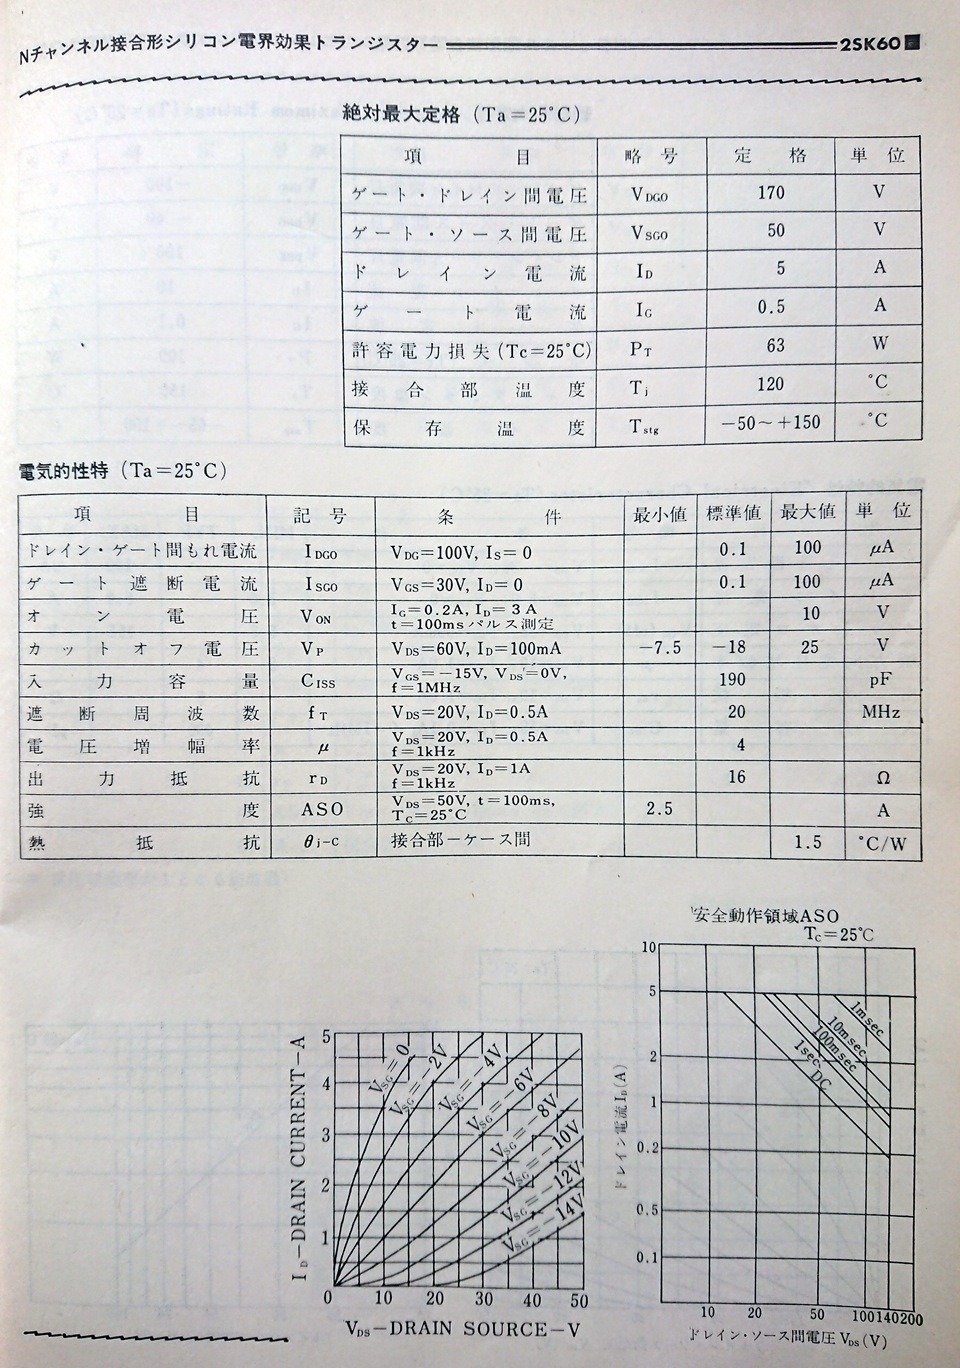 Nチャンネル接合形シリコン電界効果トランジスター 2SK60■
絶対最大定格 (Ta=25°C)
項目 略号 定格 単位
ゲート・ドレイン間電圧 VDGO 170 V
ゲート・ソース間電圧 VSGO 50 V
ドレイン電流 ID 5 A
ゲート電流 IG 0.5 A
許容電力損失(Tc=25°C) PT 63 W
接合部温度 Tj 120 °C
保存温度 Tstg −50～+150 °C
電気的性特 (Ta=25°C)
項目 記号 条件 最小値 標準値 最大値 単位
ドレイン・ゲート間もれ電流 IDGO VDG=100V, IS=0 0.1 100 μA
ゲート遮断電流 ISGO VGS=30V, ID=0 0.1 100 μA
オン電圧 VON IG=0.2A, ID=3A 10 V
t=100msパルス測定
カットオフ電圧 VP VDS=60V, ID=100mA −7.5 −18 25 V
入力容量 CISS VGS=−15V, VDS=0V, 190 pF
f=1MHz
遮断周波数 fT VDS=20V, ID=0.5A 20 MHz
電圧増幅率 μ VDS=20V, ID=0.5A 4
f=1kHz
出力抵抗 rD VDS=20V, ID=1A 16 Ω
f=1kHz
強度 ASO VDS=50V, t=100ms, 2.5 A
TC=25°C
熱抵抗 θj-c 接合部−ケース間 1.5 °C/W
ID−DRAIN CURRENT−A
5
4
3
2
1
0 10 20 30 40 50
VSG=0
VSG=−2V
VSG=−4V
VSG=−6V
VSG=−8V
VSG=−10V
VSG=−12V
VSG=−14V
VDS−DRAIN SOURCE−V
安全動作領域ASO
TC=25°C
ドレイン電流ID(A)
10
5
2
1
0.2
0.5
0.1
1msec
10msec
100msec
1sec
DC
10 20 50 100 140 200
ドレイン・ソース間電圧VDS(V)